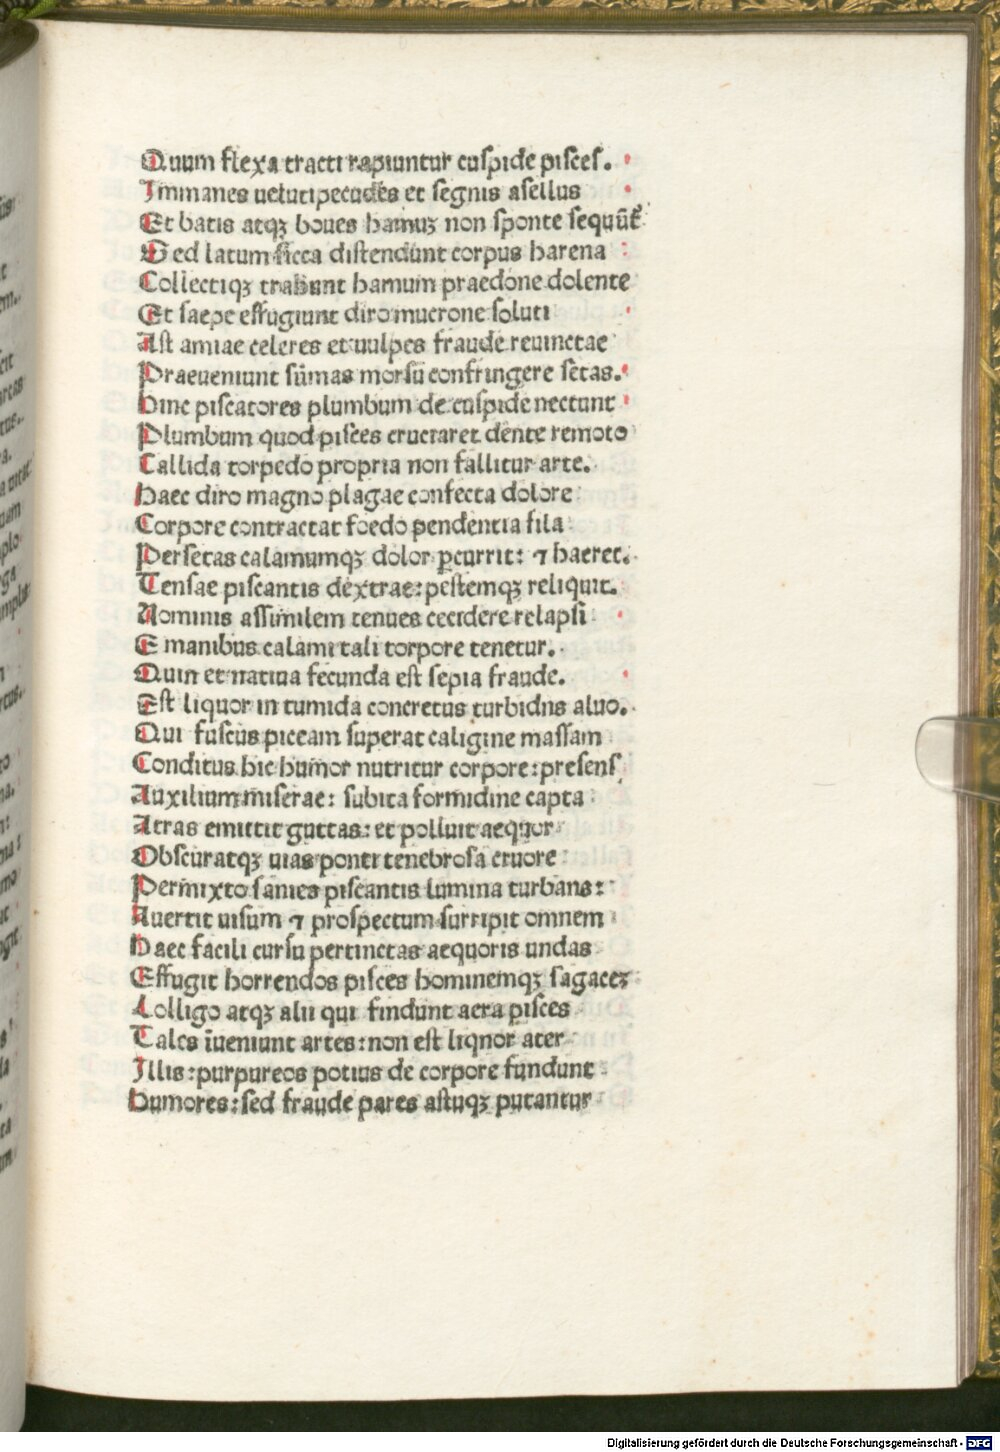 Quum flexa tracti rapiuntur cuſpide piſceſ.
Immanes ueluti pecudes et ſegnis aſellus
Et batis atqꝫ boues hamuꝫ non ſponte ſequūt᷑
Sed latum ſicca diſtendunt corpus harena
Collectiqꝫ trahunt hamum praedone dolente
Et ſaepe effugiunt diro mucrone ſoluti
Aſt amiae celeres et uulpes fraude reuinctae
Praeueniunt ſūmas morſu confringere ſetas.
Hinc piſcatores plumbum de cuſpide nectunt
Plumbum quod piſces eructaret dente remoto
Callida torpedo propria non fallitur arte.
Haec diro magno plagae confecta dolore
Corpore contractat foedo pendentia fila
Per ſetas calamumqꝫ dolor ꝑcurrit: ⁊ haeret.
Tenſae piſcantis dextrae: peſtemqꝫ reliquit.
Nominis aſſimilem tenues cecidere relapſi
E manibus calami tali torpore tenetur.
Quin et natiua fecunda eſt ſepia fraude.
Eſt liquor in tumida concretus turbidus aluo.
Qui fuſcus piceam ſuperat caligine maſſam
Conditus hic humor nutritur corpore: preſenſ
Auxilium miſerae: ſubita formidine capta
Atras emittit guttas: et polluit aequor
Obſcuratqꝫ uias ponti tenebroſa cruore
Permixto ſanies piſcantis lumina turbans:
Auertit uiſum ⁊ proſpectum ſurripit omnem
Haec facili curſu pertinctas aequoris undas
Effugit horrendos piſces hominemqꝫ ſagaceꝫ
Lolligo atqꝫ alii qui findunt aera piſces
Tales īueniunt artes: non eſt liqnor ater
Illis: purpureos potius de corpore fundunt
Humores: ſed fraude pares aſtuqꝫ putantur
Digitalisierung gefördert durch die Deutsche Forschungsgemeinschaft - DFG